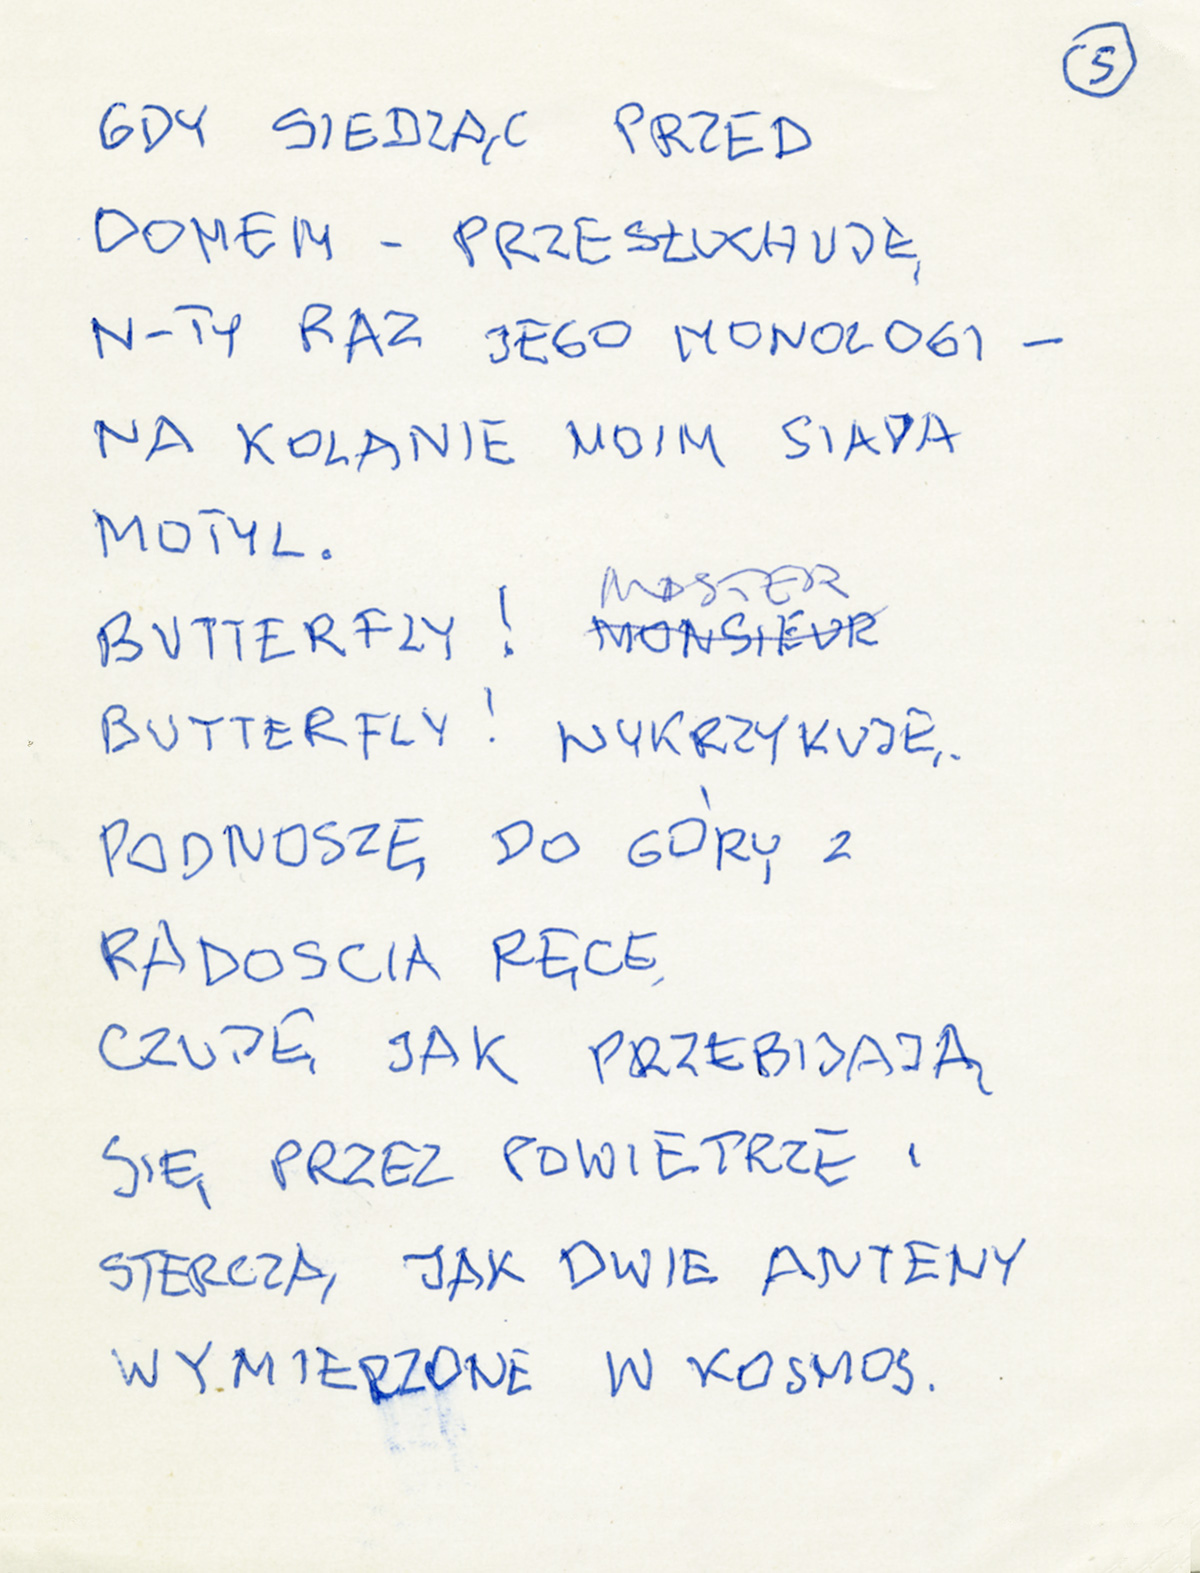 5
GDY SIEDZĄC PRZED
DOMEM - PRZESŁUCHUJĘ
N-TY RAZ JEGO MONOLOGI -
NA KOLANIE MOIM SIADA
MOTYL.
MASTER
BUTTERFLY! MONSIEUR
BUTTERFLY! WYKRZYKUJĘ.
PODNOSZĘ DO GÓRY Z
RADOSCIA RĘCE,
CZUJĘ JAK PRZEBIJAJĄ
SIĘ PRZEZ POWIETRZE I
STERCZĄ, JAK DWIE ANTENY
WYMIERZONE W KOSMOS.